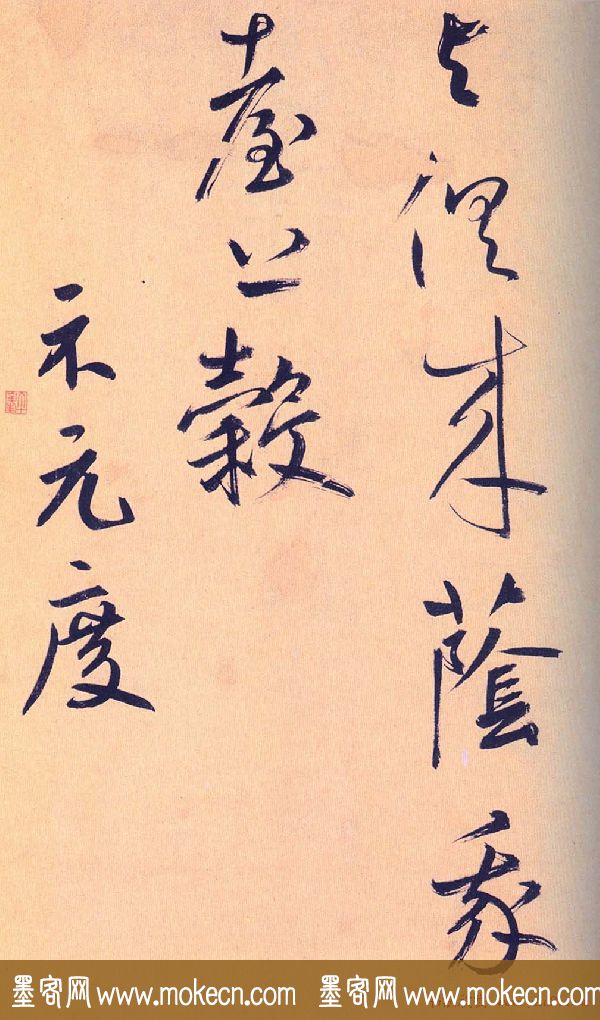 來蔭我
臺上穀
示元度
墨客网 www.mokecn.com 墨客网 www.mokecn.com